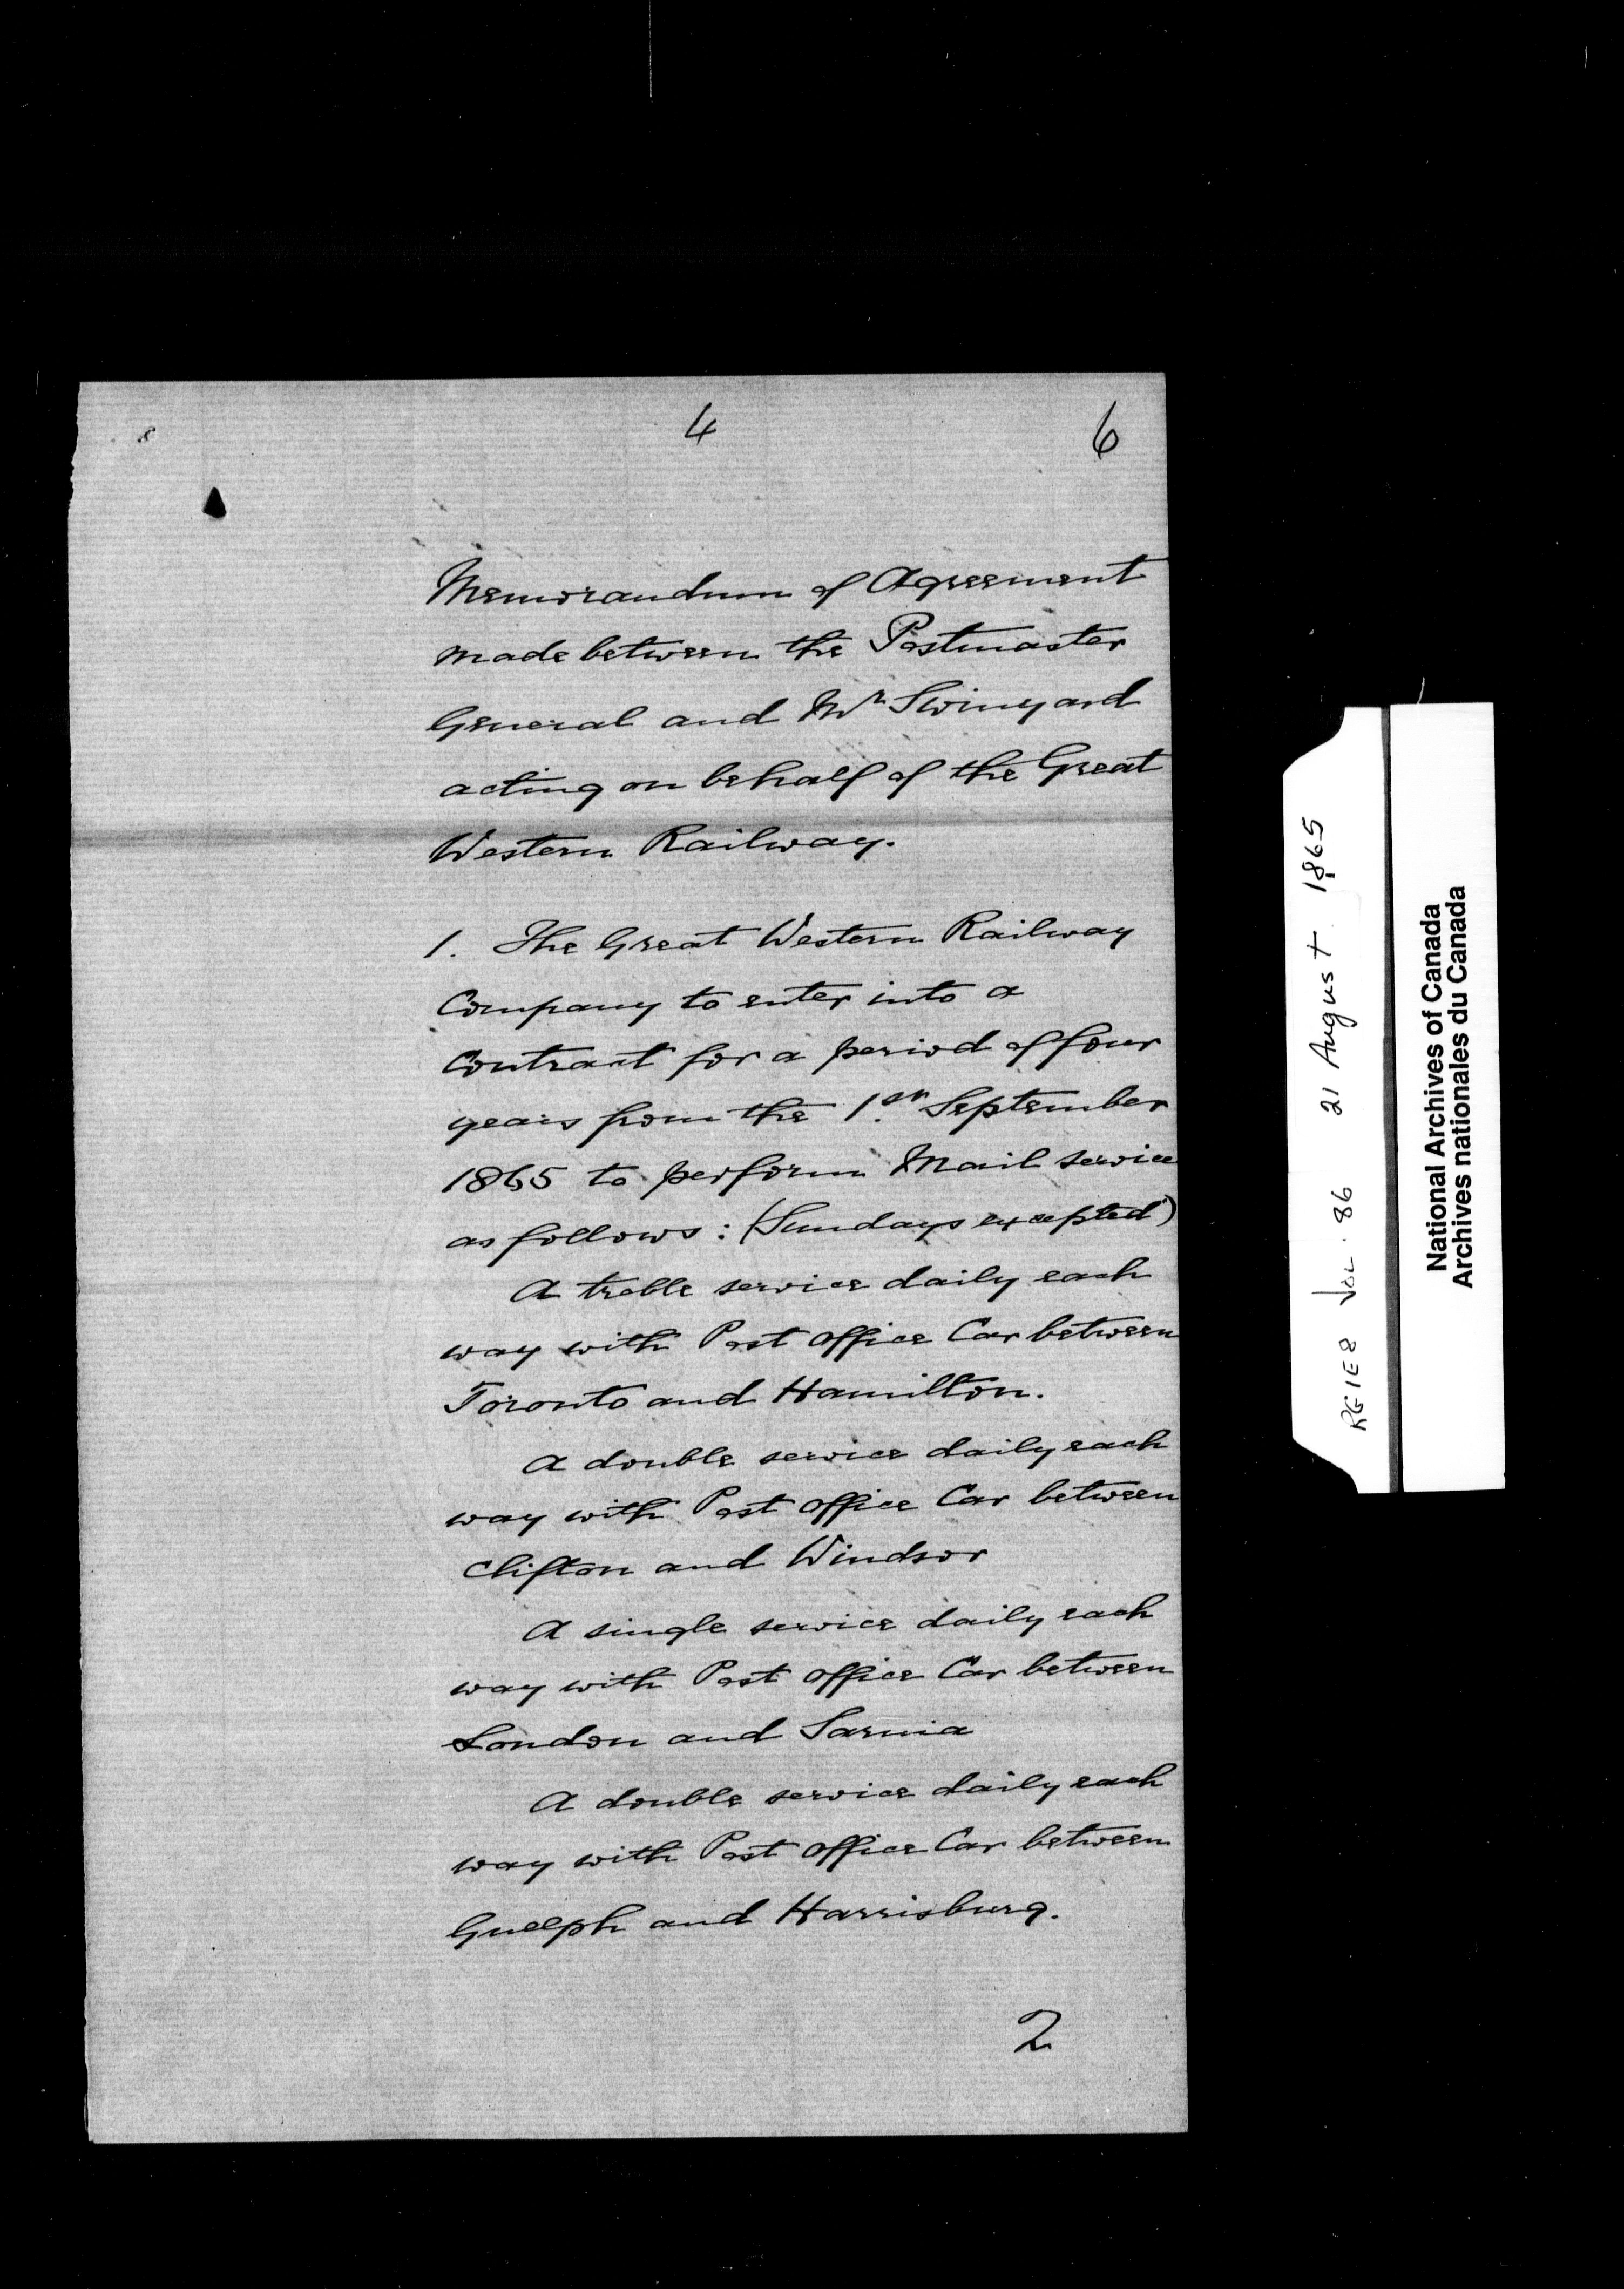 4
6
Memorandum of Agreement
made between the Postmaster
General and Mr Swinyard
acting on behalf of the Great
Western Railway.
1. The Great Western Railway
Company to enter into a
Contract for a period of four
years from the 1st September
1865 to perform Mail service
as follows: (Sundays excepted)
A treble service daily each
way with Post Office Car between
Toronto and Hamilton.
A double service daily each
way with Post Office Car between
Clifton and Windsor
A single service daily each
way with Post Office Car between
London and Sarnia
A double service daily each
way with Post Office Car between
Guelph and Harrisburg.
2
RG1E8 Vol. 86 21 August 1865
National Archives of Canada
Archives nationales du Canada